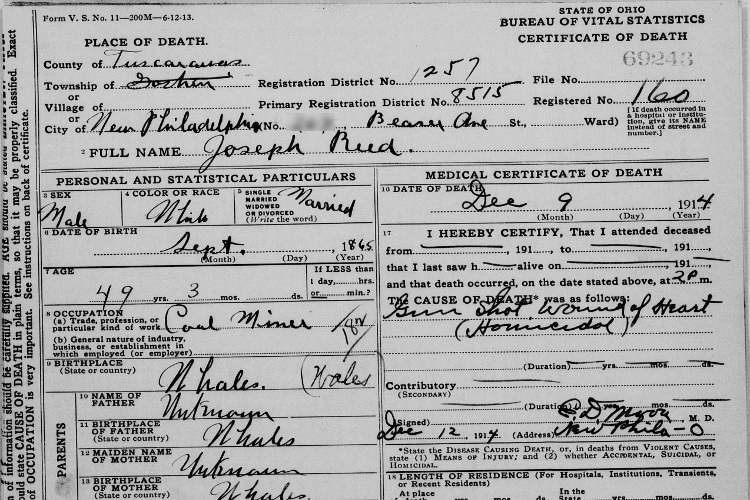 Form V. S. No. 11—200M—6-12-13.
STATE OF OHIO
BUREAU OF VITAL STATISTICS
CERTIFICATE OF DEATH
69243
PLACE OF DEATH.
County of Tuscarawas
Township of Goshen Registration District No. 1257 File No.
or
Village of Primary Registration District No. 8515 Registered No. 160
or
City of New Philadelphia No. Beaver Ave St., Ward)
[If death occurred in
a hospital or institu-
tion, give its NAME
instead of street and
number.]
2 FULL NAME Joseph Reed.
PERSONAL AND STATISTICAL PARTICULARS
3 SEX
Male
4 COLOR OR RACE
White
5 SINGLE
MARRIED
WIDOWED
OR DIVORCED
(Write the word)
Married
6 DATE OF BIRTH
Sept. 1865
(Month) (Day) (Year)
7 AGE
49 yrs. 3 mos. ds.
If LESS than
1 day, hrs.
or min.?
8 OCCUPATION
(a) Trade, profession, or
particular kind of work Coal Miner
(b) General nature of industry,
business, or establishment in
which employed (or employer)
9 BIRTHPLACE
(State or country) Whales. (Wales)
PARENTS
10 NAME OF
FATHER Unknown
11 BIRTHPLACE
OF FATHER
(State or country) Whales
12 MAIDEN NAME
OF MOTHER Unknown
13 BIRTHPLACE
OF MOTHER
(State or country) Whales
MEDICAL CERTIFICATE OF DEATH
16 DATE OF DEATH
Dec 9, 1914
(Month) (Day) (Year)
17 I HEREBY CERTIFY, That I attended deceased
from , 191 , to , 191
that I last saw h alive on , 191
and that death occurred, on the date stated above, at 2P m.
The CAUSE OF DEATH* was as follows:
Gun Shot Wound of Heart
(Homicidal)
(Duration) yrs. mos. ds.
Contributory
(SECONDARY)
(Duration) yrs. mos. ds.
(Signed) M. D.
Dec 12, 1914 (Address) New Phila - O
*State the DISEASE CAUSING DEATH, or, in deaths from VIOLENT CAUSES,
state (1) MEANS OF INJURY; and (2) whether ACCIDENTAL, SUICIDAL, or
HOMICIDAL.
18 LENGTH OF RESIDENCE (For Hospitals, Institutions, Transients,
or Recent Residents)
At place In the
of death yrs. mos. ds. State yrs. mos. ds.